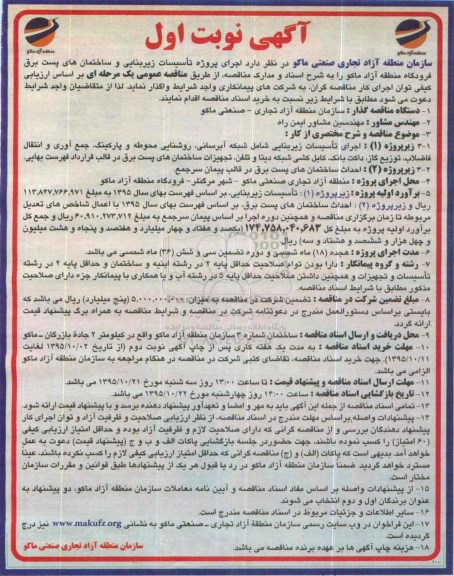 آگهی نوبت اول
منطقه آزاد ماکو
منطقه آزاد ماکو
سازمان منطقه آزاد تجاری صنعتی ماکو در نظر دارد اجرای پروژه تأسیسات زیربنایی و ساختمان های پست برق
فرودگاه منطقه آزاد ماکو را به شرح اسناد و مدارک مناقصه، از طریق مناقصه عمومی یک مرحله ای بر اساس ارزیابی
کیفی توان اجرای کار مناقصه گران، به شرکت های پیمانکاری واجد شرایط واگذار نماید. لذا از متقاضیان واجد شرایط
دعوت می شود مطابق با شرایط زیر نسبت به خرید اسناد مناقصه اقدام نمایند.
۱- دستگاه مناقصه گذار : سازمان منطقه آزاد تجاری - صنعتی ماکو
۲- مهندس مشاور : مهندسین مشاور ایمن راه
۳- موضوع مناقصه و شرح مختصری از کار :
۳-۱ زیرپروژه (۱) : اجرای تأسیسات زیربنایی شامل شبکه آبرسانی، روشنایی محوطه و پارکینک، جمع آوری و انتقال
فاضلاب، توزیع گاز، داکت بانک، کابل کشی شبکه دیتا و تلفن، تجهیزات ساختمان های پست برق در قالب قرارداد فهرست بهایی.
۳-۱ زیرپروژه (۲) : احداث ساختمان های پست برق در قالب پیمان سرجمع.
۴- محل اجرای پروژه : منطقه آزاد تجاری صنعتی ماکو - شهر مرکنلر- فرودگاه منطقه آزاد ماکو
۵- برآورد اولیه پروژه : زیرپروژه (۱) : تأسیسات زیربنایی، بر اساس فهرست بهای سال ۱۳۹۵ به مبلغ ۱۱۳,۸۴۷,۷۶۶,۹۷۱
ریال و زیرپروژه (۲) : احداث ساختمان های پست برق، بر اساس فهرست بهای سال ۱۳۹۵ با اعمال شاخص های تعدیل
مربوطه تا زمان برگزاری مناقصه و همچنین دوره اجرا بر اساس پیمان سرجمع به مبلغ ۶۰,۹۱۰,۲۷۳,۷۱۲ ریال و جمع کل
برآورد اولیه پروژه به مبلغ کل ۱۷۴,۷۵۸,۰۴۰,۶۸۳ (یکصد و هفتاد و چهار میلیارد و هفتصد و پنجاه و هشت میلیون
و چهل هزار و ششصد و هشتاد و سه) ریال.
۶- مدت اجرای پروژه : هجده (۱۸) ماه شمسی و دوره تضمین سی و شش (۳۶) ماه شمسی می باشد.
۷- رشته و گروه پیمانکاری : دارا بودن توام صلاحیت حداقل پایه ۲ در رشته ابنیه و ساختمان و حداقل پایه ۲ در رشته
تأسیسات و تجهیزات و همچنین داشتن صلاحیت حداقل پایه ۵ در رشته آب و یا همکاری با پیمانکار جزء دارای صلاحیت
مذکور مطابق با شرایط اسناد مناقصه.
۸- مبلغ تضمین شرکت در مناقصه : تضمین شرکت در مناقصه به میزان ۵,۰۰۰,۰۰۰,۰۰۰ (پنج میلیارد) ریال می باشد که
بایستی براساس دستورالعمل مندرج در دعوتنامه شرکت در مناقصه و شرایط مناقصه به همراه برگ پیشنهاد قیمت
ارائه گردد.
۹- محل دریافت و ارسال اسناد مناقصه : ساختمان شماره ۳ سازمان منطقه آزاد ماکو واقع در کیلومتر ۲ جاده بازرگان ـ ماکو
۱۰- مهلت خرید اسناد مناقصه : به مدت یک هفته کاری پس از چاپ آگهی نوبت دوم (از تاریخ ۱۳۹۵/۱۰/۰۲ لغایت
۱۳۹۵/۱۰/۱۱). جهت خرید اسناد مناقصه، تقاضای کتبی شرکت در مناقصه در هنگام مراجعه به سازمان منطقه آزاد ماکو
الزامی می باشد.
۱۱- مهلت ارسال اسناد مناقصه و پیشنهاد قیمت : تا ساعت ۱۳:۰۰ روز سه شنبه مورخ ۱۳۹۵/۱۰/۲۱ می باشد.
۱۲- تاریخ بازگشایی اسناد مناقصه : ساعت ۱۳:۰۰ روز چهارشنبه مورخ ۱۳۹۵/۱۰/۲۲ می باشد.
۱۳- تمامی اسناد مناقصه از جمله این آگهی باید به مهر و امضا و تعهدآور پیشنهاد دهنده برسد و با پیشنهاد قیمت ارائه شود.
۱۴- پیشنهادات واصله، براساس مهلت مندرج در اسناد مناقصه، از نظر ارزیابی صلاحیت و ظرفیت آزاد و توان اجرای کار
پیشنهاد دهندگان بررسی و از مناقصه گرانی که دارای صلاحیت لازم و ظرفیت آزاد بوده و حداقل امتیاز ارزیابی کیفی
(۶۰ امتیاز) را کسب نموده باشند، جهت حضوردر جلسه بازگشایی پاکات الف و ب و ج (پیشنهاد قیمت) دعوت به عمل
خواهد آمد. بدیهی است که پاکات (الف) و (ج) مناقصه گرانی که حداقل امتیاز ارزیابی کیفی لازم را کسب نکرده باشند، عینا
مسترد خواهد گردید. ضمنا سازمان منطقه آزاد ماکو در رد یا قبول هر یک از پیشنهادها طبق قوانین و مقررات سازمان
مختار است.
۱۵- از پیشنهادات واصله بر اساس مفاد اسناد مناقصه و آیین نامه معاملات سازمان منطقه آزاد ماکو، دو پیشنهاد به
عنوان برندگان اول و دوم انتخاب می شوند.
۱۶- سایر اطلاعات و جزئیات مربوط در اسناد مناقصه مندرج است.
۱۷- این فراخوان در وب سایت رسمی سازمان منطقه آزاد تجاری ـ صنعتی ماکو به نشانی www.makufz.org نیز درج
گردیده است.
۱۸- هزینه چاپ آگهی ها بر عهده برنده مناقصه می باشد.
سازمان منطقه آزاد تجاری صنعتی ماکو